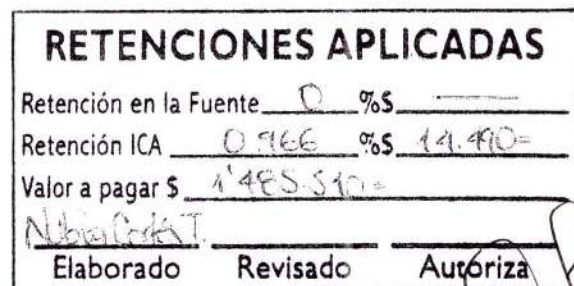 RETENCIONES APLICADAS
Retención en la Fuente 0 %$ —
Retención ICA 0.966 %$ 14.490=
Valor a pagar $ 1'485.510=
Nubia Cortés T.
Elaborado Revisado Autoriza